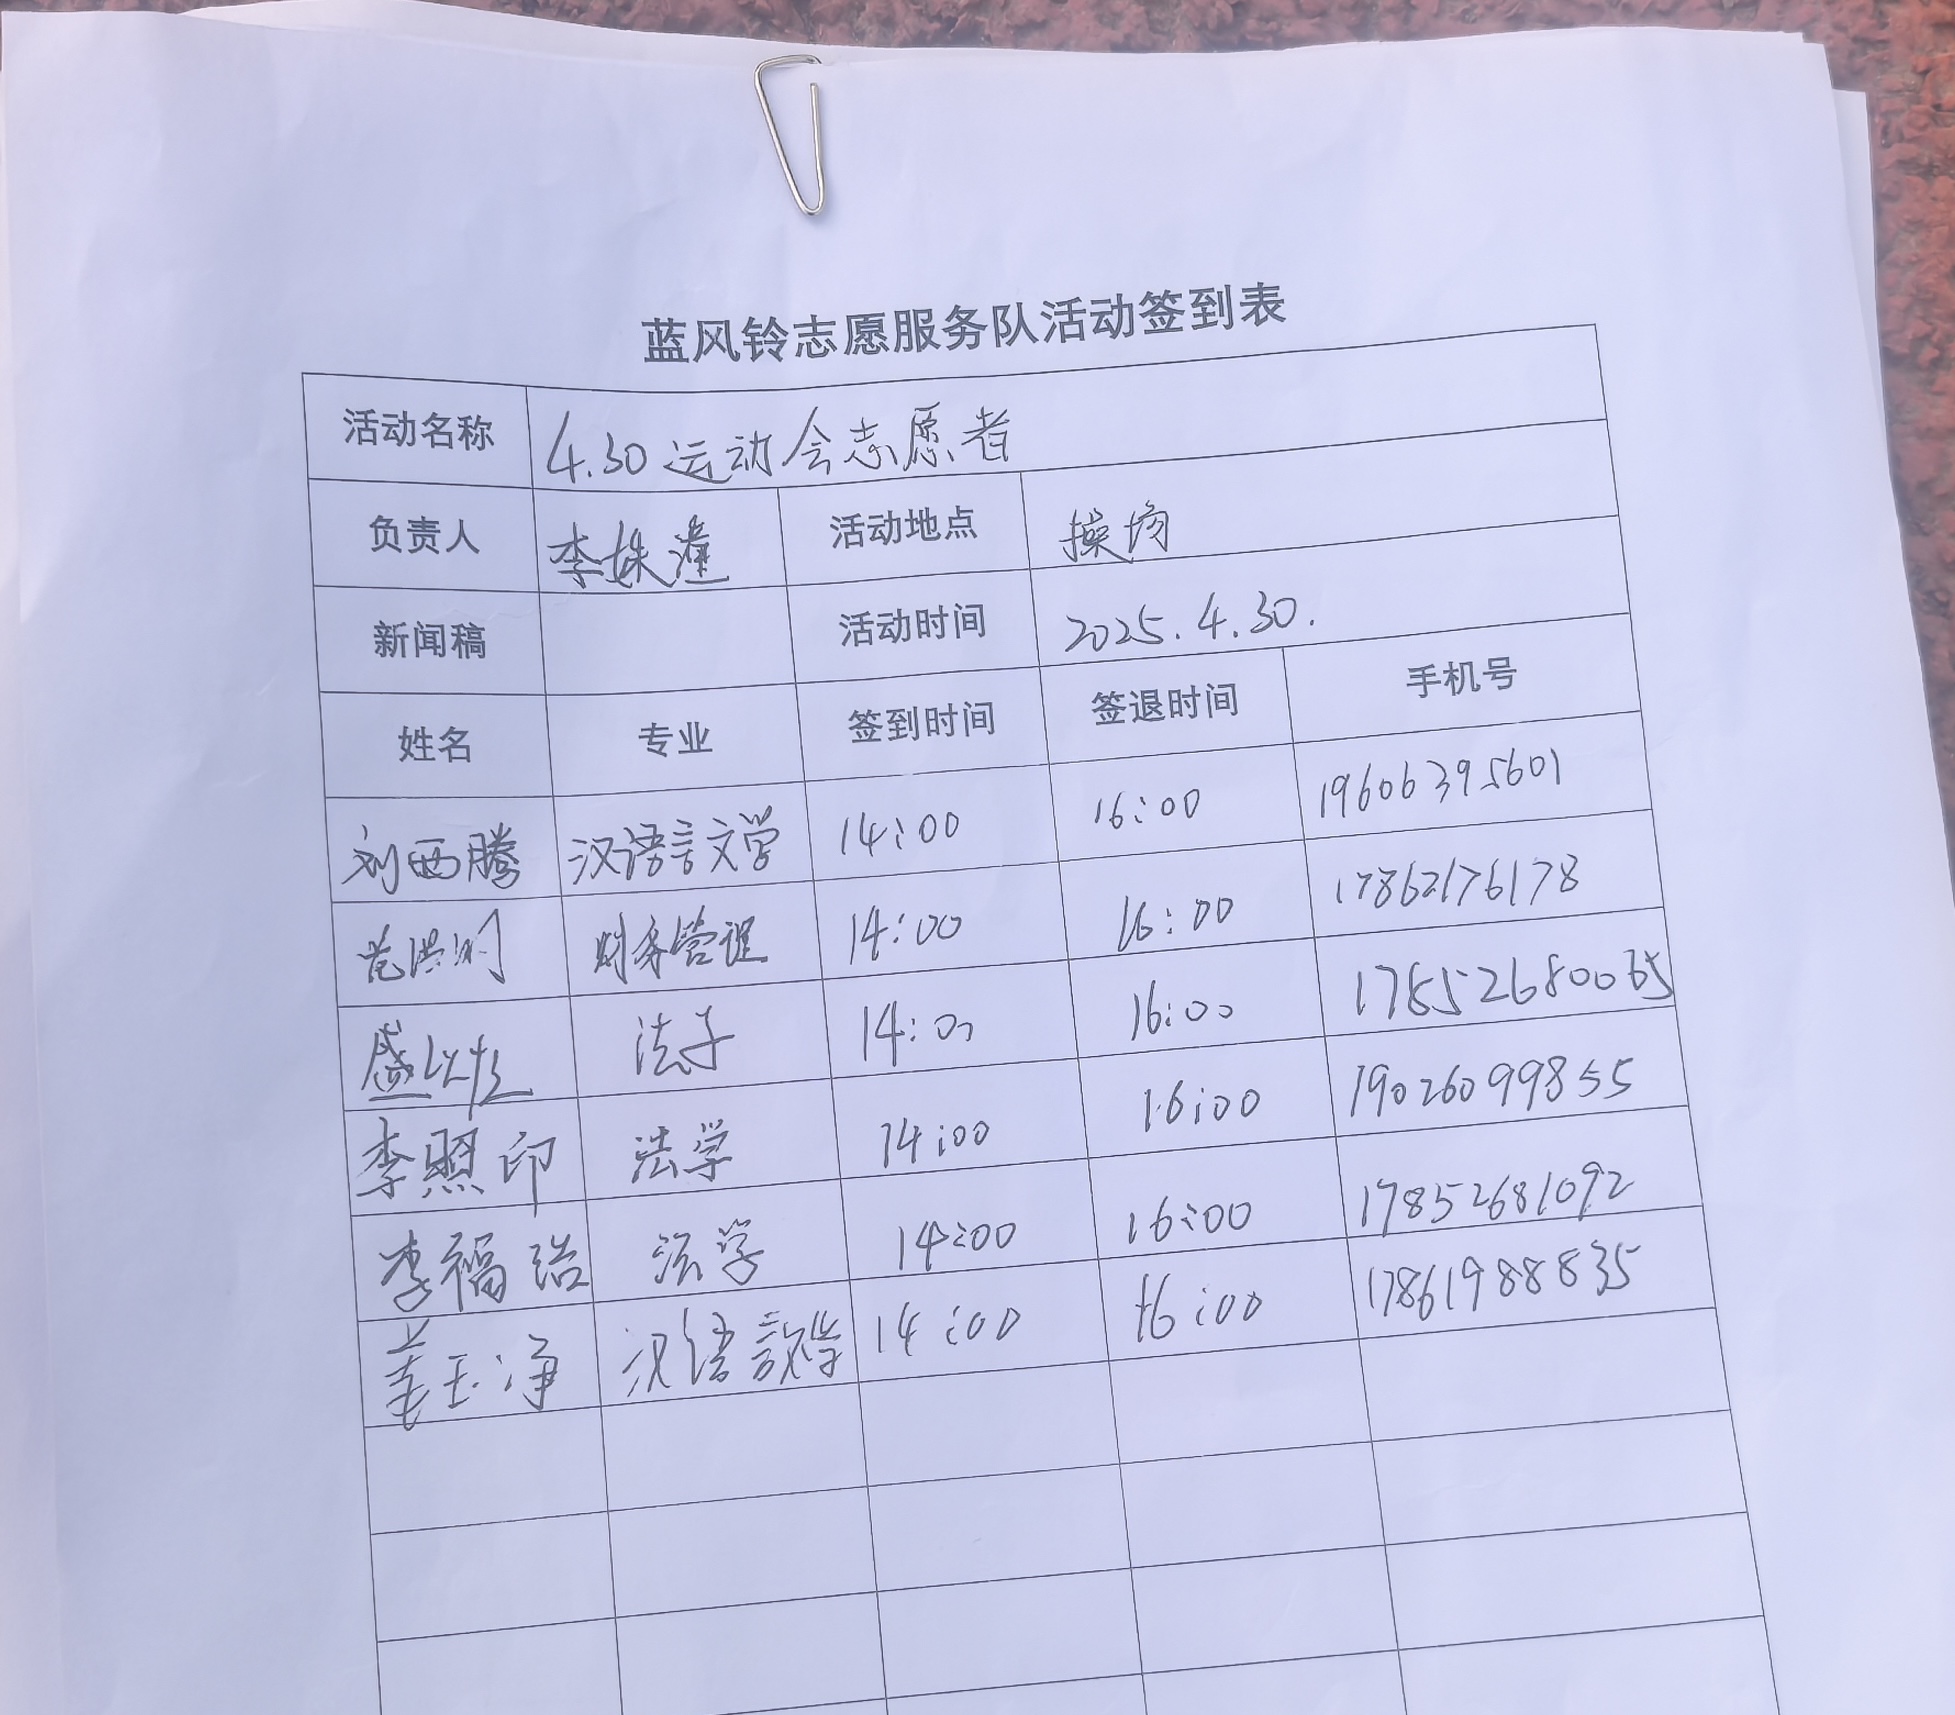 蓝风铃志愿服务队活动签到表
活动名称 4.30运动会志愿者
负责人 李姝潼 活动地点 操场
新闻稿 活动时间 2025.4.30.
姓名 专业 签到时间 签退时间 手机号
刘西腾 汉语言文学 14:00 16:00 19606395601
财务管理 14:00 16:00 17862176178
盛 法学 14:00 16:00 17852680065
李照印 法学 14:00 16:00 19026099855
李福 法学 14:00 16:00 17852681092
姜玉净 汉语言文学 14:00 16:00 17861988835